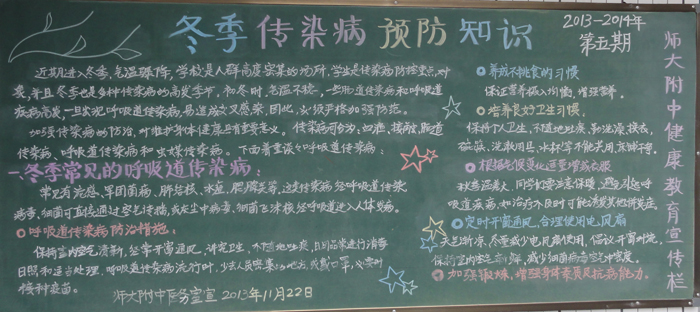 冬季传染病预防知识
2013-2014年
第五期
近期进入冬季,气温骤降,学校是人群高度密集的场所,学生是传染病防控重点对
象,并且冬季也是各种传染病的高发季节,初冬时,气温不稳,一些肠道传染病和呼吸道
疾病高发,一旦出现呼吸道传染病,易造成交叉感染,因此,必须严格加强防范。
加强传染病的防治,对维护身体健康具有重要意义。传染病可分为:血液、接触、肠道
传染病、呼吸道传染病和虫媒传染病。下面着重谈谈呼吸道传染病:
一、冬季常见的呼吸道传染病:
常见有流感、军团菌病、肺结核、水痘、腮腺炎等,这类传染病经呼吸道传染
病毒、细菌可直接通过空气传播,或灰尘中病毒、细菌飞沫核经呼吸道进入人体发病。
呼吸道传染病防治措施:
保持室内空气清新,经常开窗通风,讲究卫生,不随地吐痰,日用品常进行消毒
日照和适当处理,呼吸道传染病流行时,少去人员密集的地方,或戴口罩,必要时
接种疫苗。
师大附中医务室宣 2013年11月22日
养成不挑食的习惯
保证营养摄入均衡,增强营养。
培养良好卫生习惯,
保持个人卫生,不随地吐痰,勤洗澡换衣,
脸盆、洗漱用具、水杯等不能共用,床铺干净。
根据气候变化适量增减衣服
秋冬温差大,同学们要注意保暖,避免引起呼
吸道疾病,如治疗不及时可能诱发其他并发症。
定时开窗通风,合理使用电风扇
天气渐凉,尽量减少电风扇使用,倡议开窗对流,
保持室内空气新鲜,减少细菌病毒空气中密度。
加强锻炼,增强身体素质及抗病能力。
师大附中健康教育宣传栏